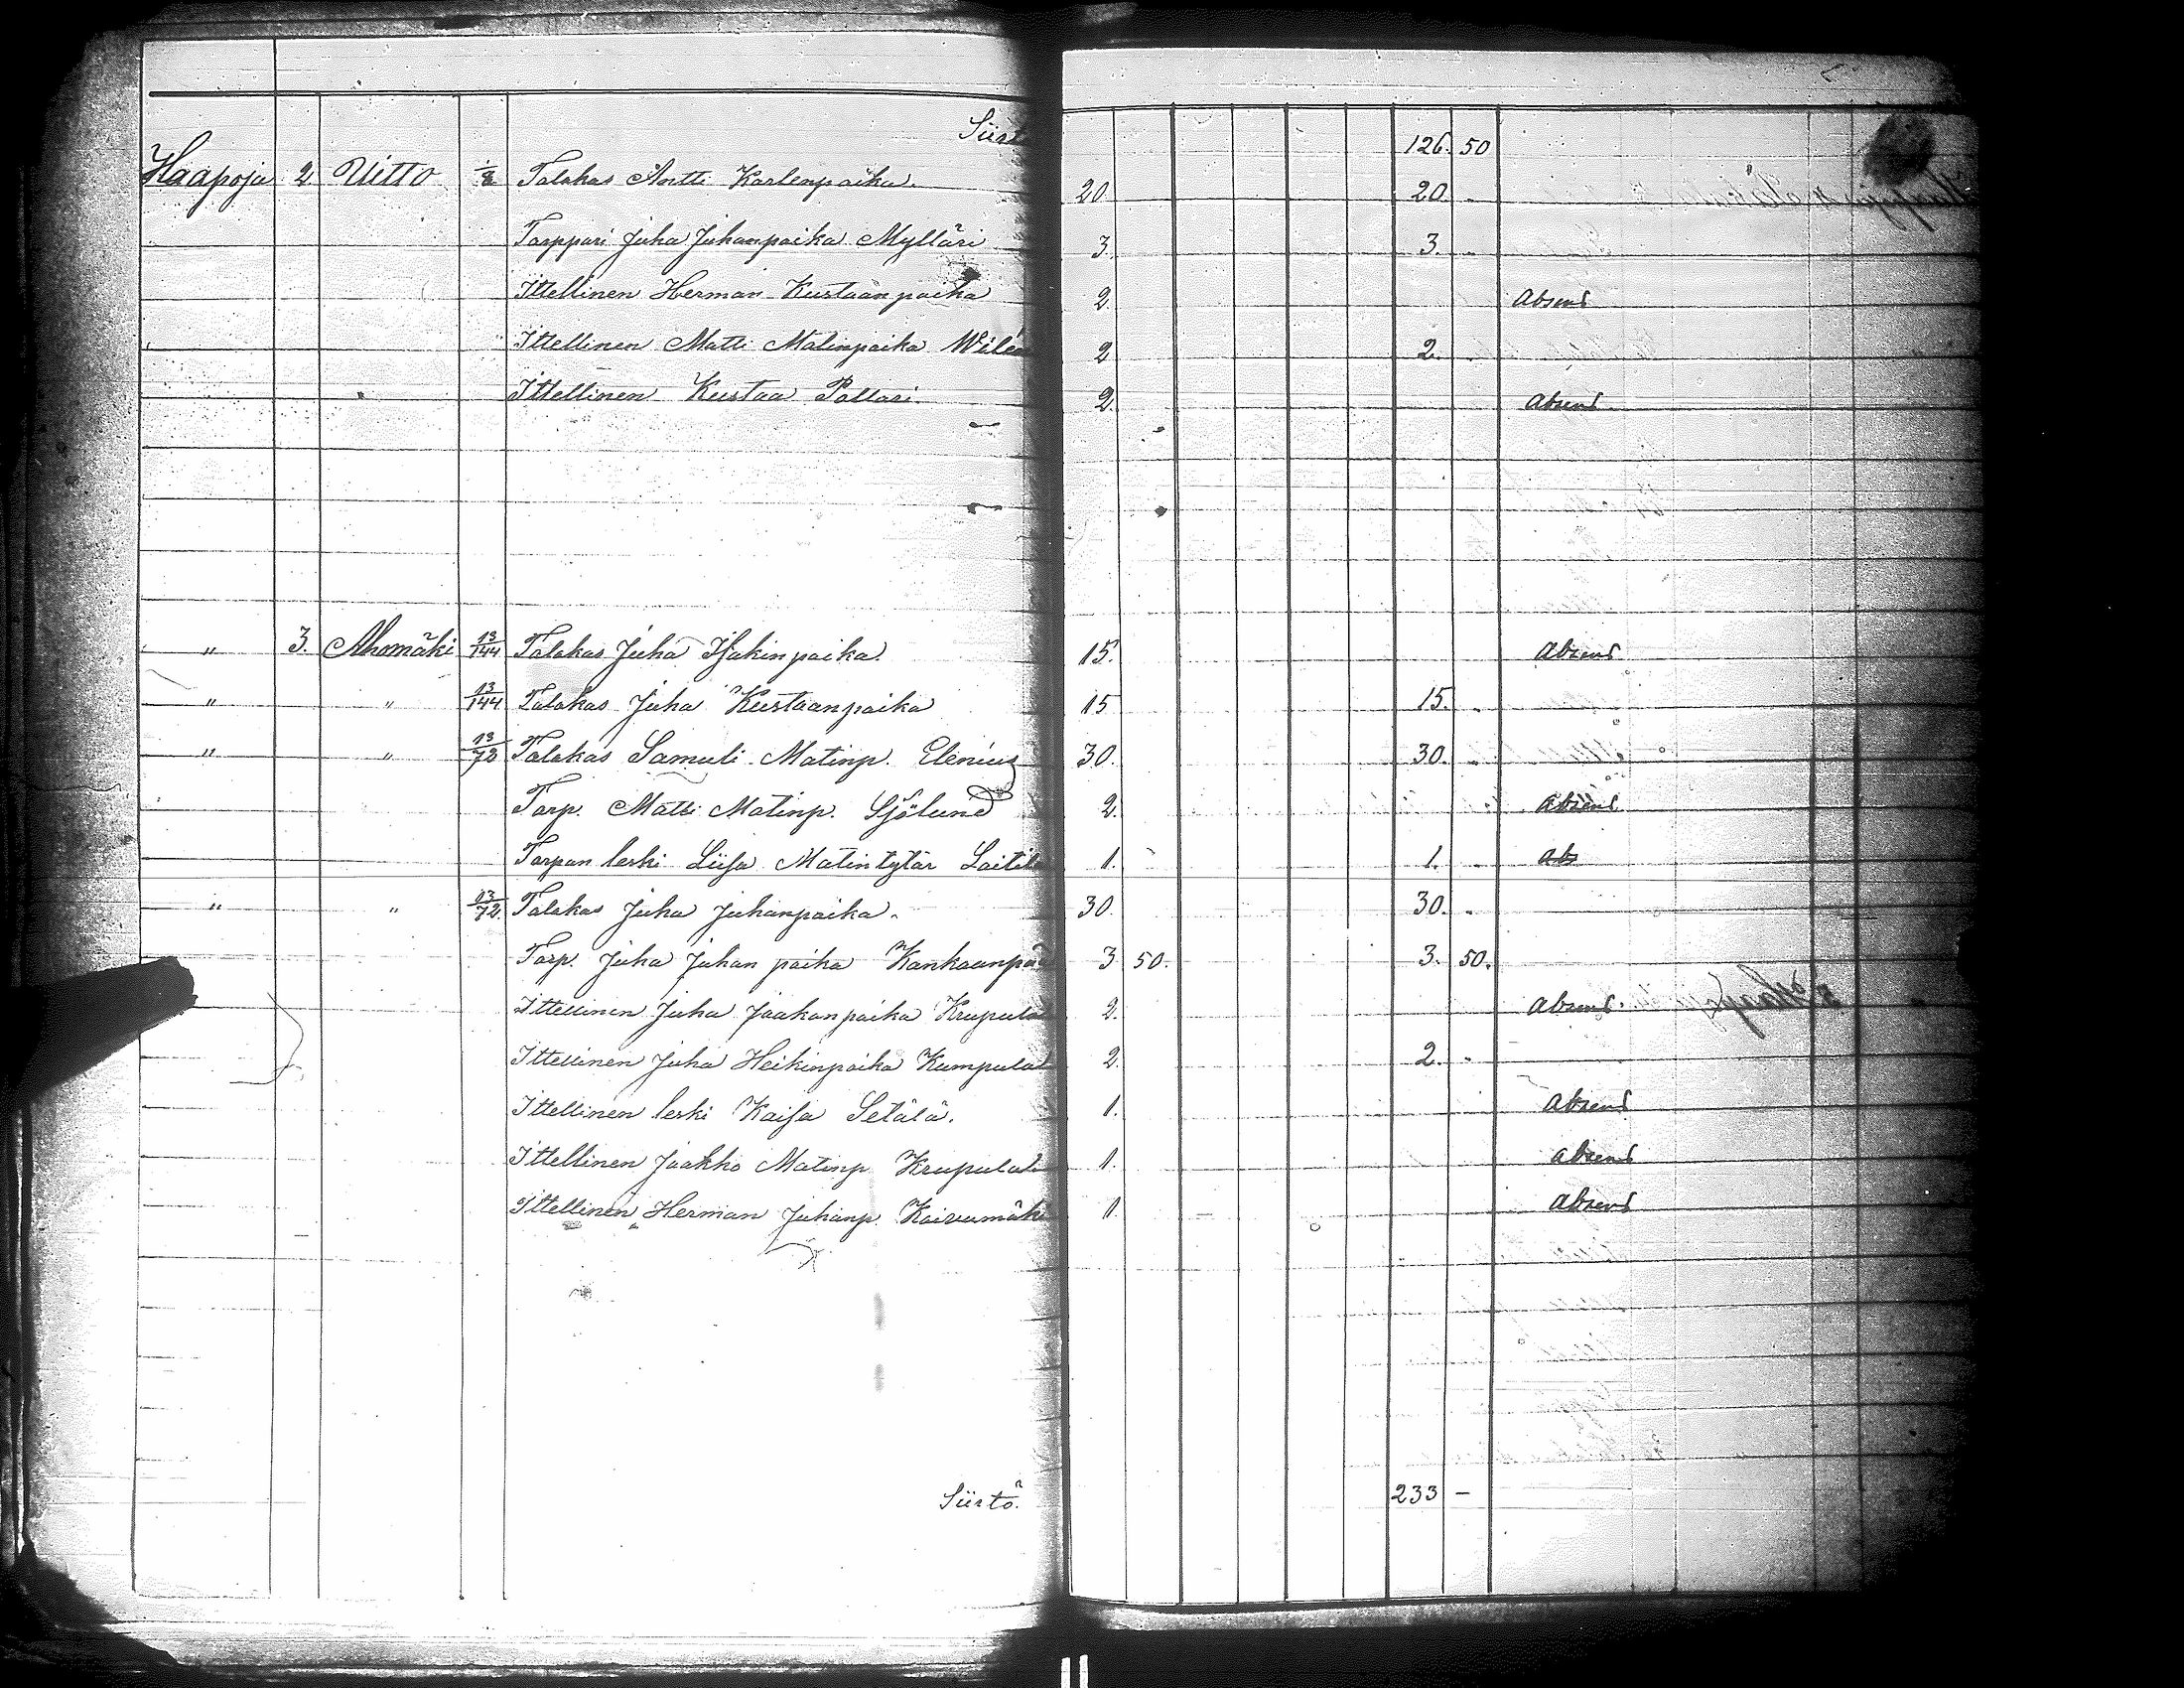 Siirt
126. 50
Haapoja 2 Uitto 1/8 Talokas Antti Karlenpoika. 20 20. „
Torppari Juha Juhanpoika Mylläri 3. 3. „
Ittellinen Herman Kustaanpoika 2. Absens
Ittellinen Matti Matinpoika 2 2. „
Ittellinen Kustaa Pallari 2. Absens
„ 3. Ahomäki 13/144 Talokas Juha Isakinpoika. 15. Absens
„ „ 13/144 Talokas Juha Kustaanpoika 15 15. „
„ „ 13/72 Talokas Samuli Matinp. Elenius 30. 30. „
Torp. Matti Matinp. Sjölund 2. Absens
Torpan leski Liisa Matintytär 1. 1. „ abs
„ „ 13/72 Talokas Juha Juhanpoika. 30. 30. „
Torp. Juha Juhan poika Kankaanpä 3 50. 3. 50.
Ittellinen Juha Jaakonpoika Krupula 2. Absens.
Ittellinen Juha Heikinpoika Kumpula 2. 2. „
Ittellinen leski Kaisa Setälä. 1. Absens
Ittellinen Jaakko Matinp Krupula 1. absens
Ittellinen Herman Juhanp. Koivumäki 1. Absens
Siirtö. 233 —